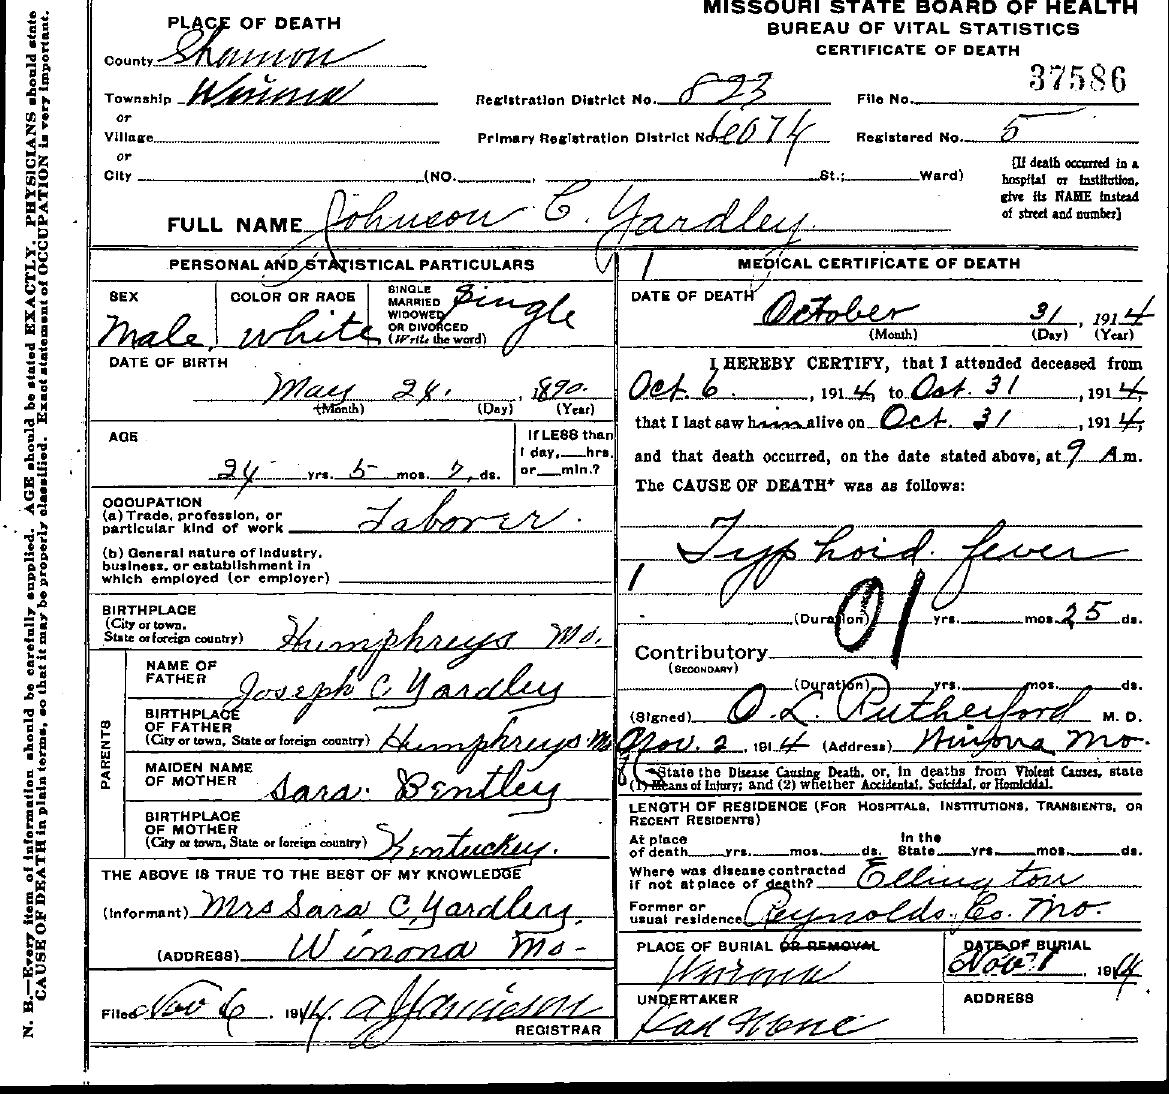 MISSOURI STATE BOARD OF HEALTH
BUREAU OF VITAL STATISTICS
CERTIFICATE OF DEATH
PLACE OF DEATH
County Shannon
Township Winona
or
Village
or
City (NO. , St.; Ward)
Registration District No. 823
Primary Registration District No. 6074
File No. 37586
Registered No. 5
[If death occurred in a
hospital or institution,
give its NAME instead
of street and number]
FULL NAME Johnson C. Yardley
PERSONAL AND STATISTICAL PARTICULARS
SEX
Male
COLOR OR RACE
white
SINGLE
MARRIED
WIDOWED
OR DIVORCED
(Write the word)
Single
DATE OF BIRTH
May 24. , 1890.
(Month) (Day) (Year)
AGE
24 yrs. 5 mos. 7, ds.
If LESS than
1 day, hrs.
or min.?
OCCUPATION
(a) Trade, profession, or
particular kind of work Laborer.
(b) General nature of industry,
business, or establishment in
which employed (or employer)
BIRTHPLACE
(City or town,
State or foreign country) Humphreys Mo.
PARENTS
NAME OF
FATHER Joseph C Yardley
BIRTHPLACE
OF FATHER
(City or town, State or foreign country) Humphreys Mo
MAIDEN NAME
OF MOTHER Sara. Bentley
BIRTHPLACE
OF MOTHER
(City or town, State or foreign country) Kentuckey.
THE ABOVE IS TRUE TO THE BEST OF MY KNOWLEDGE
(Informant) Mrs Sara C Yardley,
(ADDRESS) Winona Mo-
Filed Nov 6 , 1914.
REGISTRAR
MEDICAL CERTIFICATE OF DEATH
DATE OF DEATH October 31 , 1914
(Month) (Day) (Year)
I HEREBY CERTIFY, that I attended deceased from
Oct. 6 , 1914, to Oct. 31 , 1914,
that I last saw him alive on Oct. 31 , 1914,
and that death occurred, on the date stated above, at 9 A m.
The CAUSE OF DEATH* was as follows:
Typhoid fever
01
(Duration) yrs. mos. 25 ds.
Contributory
(SECONDARY)
(Duration) yrs. mos. ds.
(Signed) O.L. Rutherford M. D.
Nov. 2 , 1914 (Address) Winona Mo.
*State the Disease Causing Death, or, in deaths from Violent Causes, state
(1) Means of Injury; and (2) whether Accidental, Suicidal, or Homicidal.
LENGTH OF RESIDENCE (FOR HOSPITALS, INSTITUTIONS, TRANSIENTS, OR
RECENT RESIDENTS)
At place
of death yrs. mos. ds.
In the
State yrs. mos. ds.
Where was disease contracted
if not at place of death? Ellington
Former or
usual residence Reynolds. Co. Mo.
PLACE OF BURIAL OR REMOVAL
Winona
DATE OF BURIAL
Nov 1 , 1914
UNDERTAKER
ADDRESS
N. B.—Every item of information should be carefully supplied. AGE should be stated EXACTLY. PHYSICIANS should state
CAUSE OF DEATH in plain terms, so that it may be properly classified. Exact statement of OCCUPATION is very important.